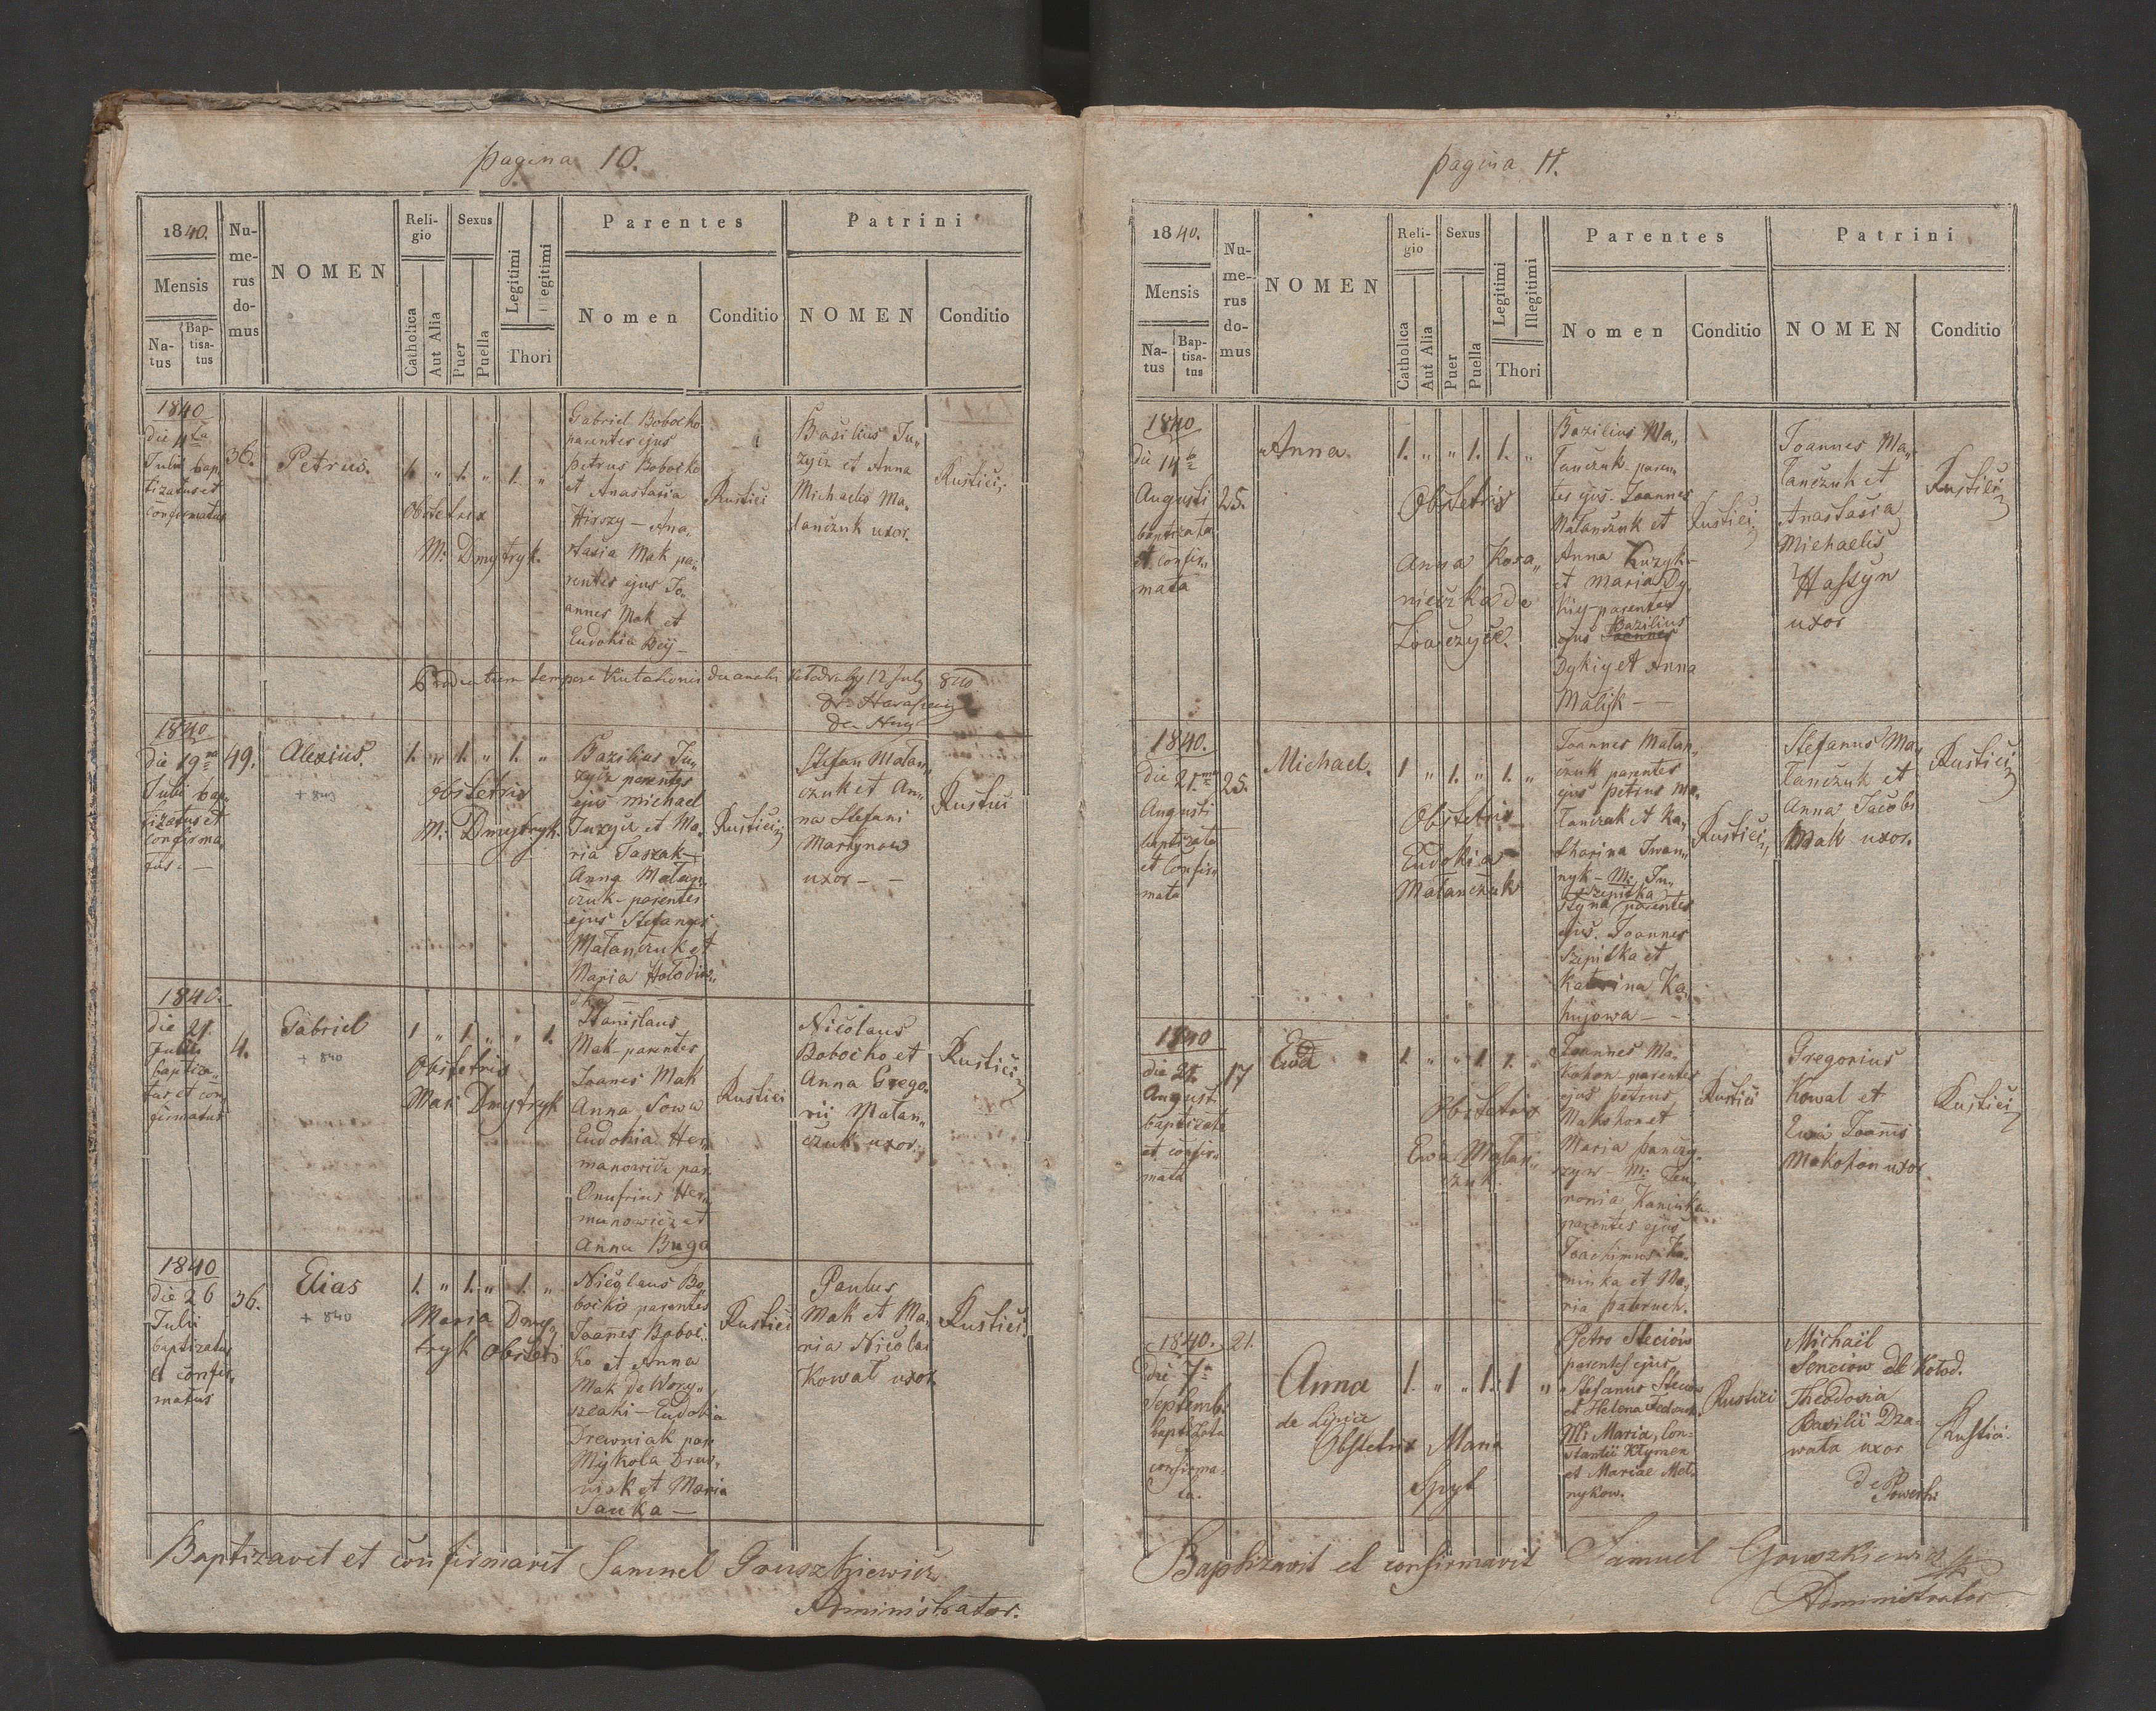 pagina 10.
1840.
Mensis
Na-
tus
Bap-
tisa-
tus
Nu-
me-
rus
do-
mus
NOMEN
Reli-
gio
Catholica
Aut Alia
Sexus
Puer
Puella
Legitimi
Illegitimi
Thori
Parentes
Nomen
Conditio
Patrini
NOMEN
Conditio
1840
die 4ta
Julii bap
tizatus et
confirmatus
36.
Petrus.
1. " 1. " 1. "
Obstetrex
M: Dmytryk.
Gabriel Bobocko
parentes ejus
petrus Bobocko
et Anastasia
Hirszy – Ana,
stasia Mak pa,,
rentes ejus Jo,,
annes Mak et
Eudokia Bey –
Rustici
Basilius Ju,,
zycz et Anna
Michaelis Ma,,
lanczuk uxor.
Rustici,
Productum tempore 12 July 840
1840
die 19na
Julii bap,,
tizatus et
confirma,,
tus. –
49.
Alexius.
+ 843
1. " 1. " 1. "
Obstetrix
M: Dmytryk.
Bazilius Ju,,
zycz parentes
ejus michael
Juzycz et Ma,,
ria Taszak –
Anna Matan,,
czuk – parentes
ejus Stefanus
Matanczuk et
Maria Hołodiw,,
Rustici
Stefan Matan,,
czuk et An,,
na Stefani
Martynow
uxor – –
Rustici
1840.
die 21.
Julii
baptiza,,
tus et con,,
firmatus
4.
Gabriel
+ 840
1 " 1 " " 1.
Obstetrix
Mar: Dmytryk
Stanislaus
Mak parentes
Joanes Mak
Anna Sowa
Eudokia Her,,
manowicz par.
Onufrius Her,,
manowicz et
Anna Buga
Rustici
Nicolaus
Bobocko et
Anna Grego,,
rii Matan,,
czuk uxor.
Rustici
1840
die 26
Julii
baptizatus
et confir,,
matus
36.
Elias
+ 840
1. " 1. " 1. "
Maria Dmy,,
tryk Obstetri
Nicolaus Bo,,
bocko parentes
Joannes Boboc,,
ko et Anna
Mak de Wory,,
szcaki – Eudokia
Drewniak par
Mykola Drew,,
niak et Maria
Sauka –
Rustici
Paulus
Mak et Ma,,
ria Nicolai
Kowal uxor
Rustici.
Baptizavit et confirmavit Samuel Gruszkiewicz
Administrator.
pagina 11.
1840.
Mensis
Na-
tus
Bap-
tisa-
tus
Nu-
me-
rus
do-
mus
NOMEN
Reli-
gio
Catholica
Aut Alia
Sexus
Puer
Puella
Legitimi
Illegitimi
Thori
Parentes
Nomen
Conditio
Patrini
NOMEN
Conditio
1840
die 14ta
Augusti
baptizata
et confir,,
mata
25.
Anna.
1. " " 1. 1. "
Obstetrix
Anna Kosa,,
nieczka de
Bazilius Ma,,
tanczuk – paren,,
tes ejus. Joannes
Matanczuk et
Anna Kuzyk –
et maria Dy,,
kiy – parentes
Bazilius
ejus Joannes
Dykiy et Anna
Malijk – –
Rustici
Joannes Ma,,
tanczuk et
Anastasia
Michaelis
Hassyn
uxor
Rustici
1840.
die 21.ma
Augusti
baptizata
et Confir,,
mata
25.
Michael.
1 " 1. " 1. "
Obstetrix
Eudokia
Matanczuk
Joannes Matan,,
czuk parentes
ejus petrus Ma,,
tanczuk et Ka,,
tharina Iwan,,
nyk – M: Ju,,
Szepitka
styna parentes
ejus. Joannes
Szepitka et
Katarina Ka,,
hujowa – –
Rustici,
Stefanus Ma,,
tanczuk et
Anna Jacobi
Mak uxor.
Rustici
1840
die 21.
Augusti
baptizata
et confir,,
mata
17
Ewa
1. " " 1. 1. "
Obstetrix
Ewa Matan,,
czuk.
Joannes Ma,,
kohon – parentes
ejus petrus
Makohon et
Maria panczy,,
szyn – M: Few,,
ronia Kaminka
parentes ejus
Joachimus Ka,,
minka et Ma,,
ria patruch.
Rustici
Gregorius
Kowal et
Ewa Joannis
Makohon uxor
Rustici
1840.
die 7a
Septembr
baptizata
et
confirma-
ta.
21.
Anna
de Lipica
1. " " 1. 1 "
Obstetrix Maria
Spyt
Petro Steciów
parentes ejus
Stefanus Steciow
et Helena Fedow.
M: Maria, Con-
stantii Klymen
et Mariae Mel,,
nykow.
Rustici
Michaël
Senciow de Kołod.
Theodosia
Basilii Dza-
wata uxor
Rustici.
Baptizavit et confirmavit Samuel Gruszkiewicz
Administrator